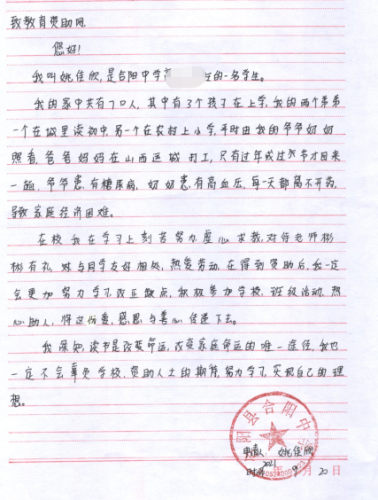 致教育资助网
您好!
我叫姚佳欣,是合阳中学高 班的一名学生。
我的家中共有7口人,其中有3个孩子在上学,我的两个弟弟
一个在城里读初中,另一个在农村上小学,平时由我的爷爷奶奶
照看,爸爸妈妈在山西运城打工,只有过年或过节才回来
一趟,爷爷患有糖尿病,奶奶患有高血压,每一天都离不开药,
导致家庭经济困难。
在校我在学习上刻苦努力虚心求教,对待老师彬
彬有礼,与同学友好相处,热爱劳动,在得到资助后,我一定
会更加努力学习,改正缺点,积极参加学校、班级活动,热
心助人,将这份爱,感恩与善心传递下去。
我深知,读书是改变命运,改变家庭命运的唯一途径,我也
一定不会辜负学校,资助人士的期待,努力学习,实现自己的理
想。
阳县合阳中
申请人 姚佳欣
时间 2021 年9月20日